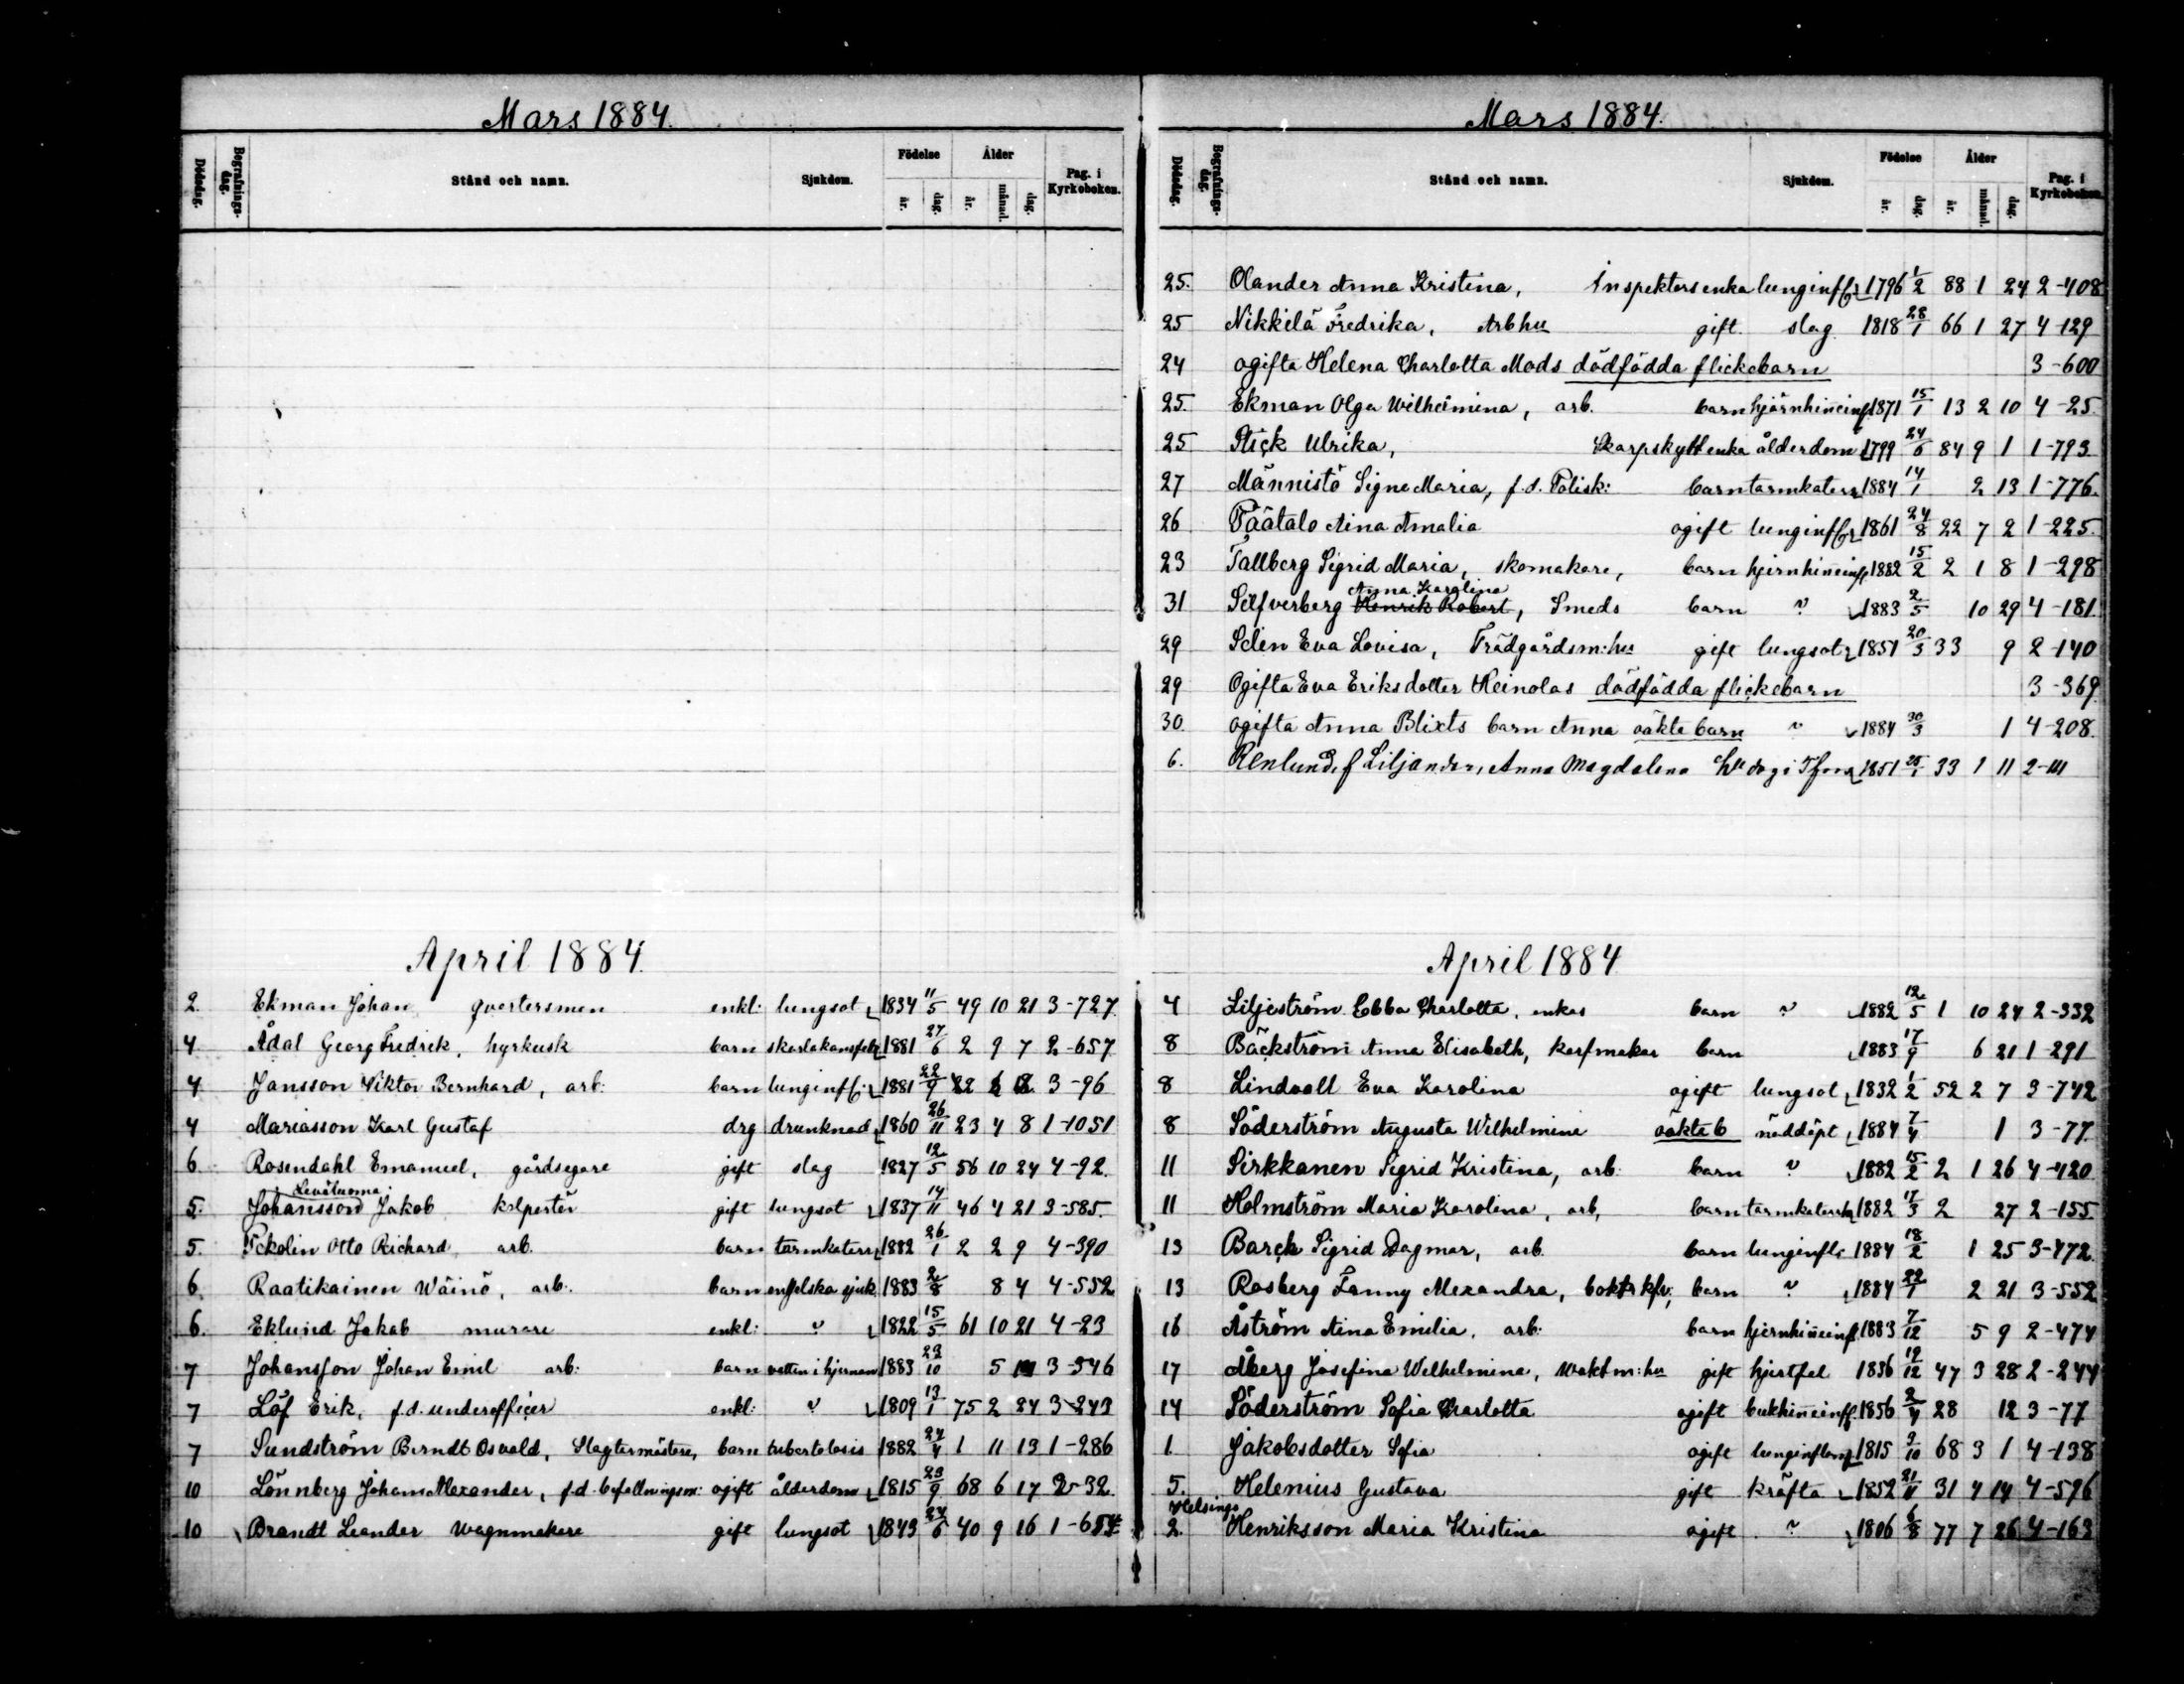 Mars 1884.
Dödsdag. Begrafningsdag. Stånd och namn. Sjukdom. Födelse år. dag. Ålder år. månad. dag. Pag. i Kyrkoboken.
April 1884.
2. Ekman Johan, qvartersman enkl: lungsot 1834 11/5 49 10 21 3-727.
4. Ådal Georg Fredrik, hyrkusk barn skarlakansfeb 1881 27/6 2 9 7 2-657
4 Jansson Viktor Bernhard, arb: barn lunginfl. 1881 22/9 3-96
4 Mariasson Karl Gustaf drg drunknad 1860 26/11 23 4 8 1-1051
6. Rosendahl Emanuel, gårdsegare gift slag 1827 12/5 56 10 24 4-92.
Leväluoma
5. Johansson Jakob kolportör gift lungsot 1837 14/11 46 4 21 3-585.
5. Eckolin Otto Richard, arb. barn tarmkatarr 1882 26/1 2 2 9 4-390
6. Raatikainen Wäinö, arb. barn engelska sjuk. 1883 2/8 8 4 4-552
6. Eklund Jakob murare enkl: " 1822 15/5 61 10 21 4-23
7 Johansson Johan Emil arb: barn vatten i hjernan 1883 23/10 5 3-546
7 Löf Erik, f.d. underofficer enkl: " 1809 13/1 75 2 24 3-243
7 Sundström Berndt Osvald, Slagtarmästare, barn tubertolosis 1882 24/4 1 11 13 1-286
10 Lönnberg Johan Alexander, f.d. befallningsm: ogift ålderdom 1815 23/9 68 6 17 2-32.
10 Brandt Leander wagnmakare gift lungsot 1843 24/6 40 9 16 1-654
Mars 1884.
Dödsdag. Begrafningsdag. Stånd och namn. Sjukdom. Födelse år. dag. Ålder år. månad. dag. Pag. i Kyrkoboken.
25. Olander Anna Kristina, Inspektorsenka lunginfl 1796 1/2 88 1 24 2-408
25 Nikkilä Fredrika, Arbhu gift slag 1818 28/1 66 1 27 4-129
24 ogifta Helena Charlotta Mods dödfödda flickebarn 3-600
25. Ekman Olga Wilhelmina, arb. barn hjärnhinneinfl. 1871 15/1 13 2 10 4-25
25 Stick Ulrika, Skarpskyttenka ålderdom 1799 24/6 84 9 1 1-793
27 Männistö Signe Maria, f.d. Polisk: barn tarmkatarr 1884 14/1 2 13 1-776.
26 Päätalo Aina Amalia ogift lunginfl 1861 24/8 22 7 2 1-225.
23 Tallberg Sigrid Maria, skomakare, barn hjernhinneinfl. 1882 15/2 2 1 8 1-298
Anna Karolina
31 Silfverberg Henrik Robert, Smeds barn " 1883 2/5 10 29 4-181
29 Selin Eva Lovisa, Trädgårdsm:hu gift lungsot 1851 20/3 33 9 2-140
29 Ogifta Eva Eriksdotter Heinolas dödfödda flickebarn 3-369
30. ogifta Anna Blixts barn Anna oäkta barn " 1884 30/3 1 4-208.
6. Renlund, f Liljander, Anna Magdalena 1851 25/1 33 1 11 2-111
April 1884
4 Liljeström Ebba Charlotta, enkas barn " 1882 12/5 1 10 24 2-332
8 Bäckström Anna Elisabeth, korfmakar barn 1883 17/9 6 21 1-291
8 Lindvall Eva Karolina ogift lungsot 1832 1/2 52 2 7 3-742
8 Söderström Augusta Wilhelmina oäkta b nöddöpt 1884 7/4 1 3-77.
11 Sirkkanen Sigrid Kristina, arb. barn " 1882 15/2 2 1 26 4-420
11 Holmström Maria Karolina, arb, barn tarmkatarrh 1882 17/3 2 27 2-155
13 Barck Sigrid Dagmar, arb. barn lunginfl. 1884 18/2 1 25 3-472
13 Rosberg Fanny Alexandra, barn " 1884 22/1 2 21 3-552
16 Åström Aina Emilia, arb: barn hjernhinneinfl. 1883 7/12 5 9 2-474
17 Åberg Josefina Wilhelmina, waktm:hu gift hjertfel 1836 19/12 47 3 28 2-244
14 Söderström Sofia Charlotta ogift bukhinneinfl. 1856 2/4 28 12 3-77
1. Jakobsdotter Sofia ogift lunginflam 1815 3/10 68 3 1 4-138
5. Helenius Gustava gift kräfta 1852 21/11 31 4 14 4-596
Helsinge
2. Henriksson Maria Kristina ogift " 1806 6/8 77 7 26 4-163